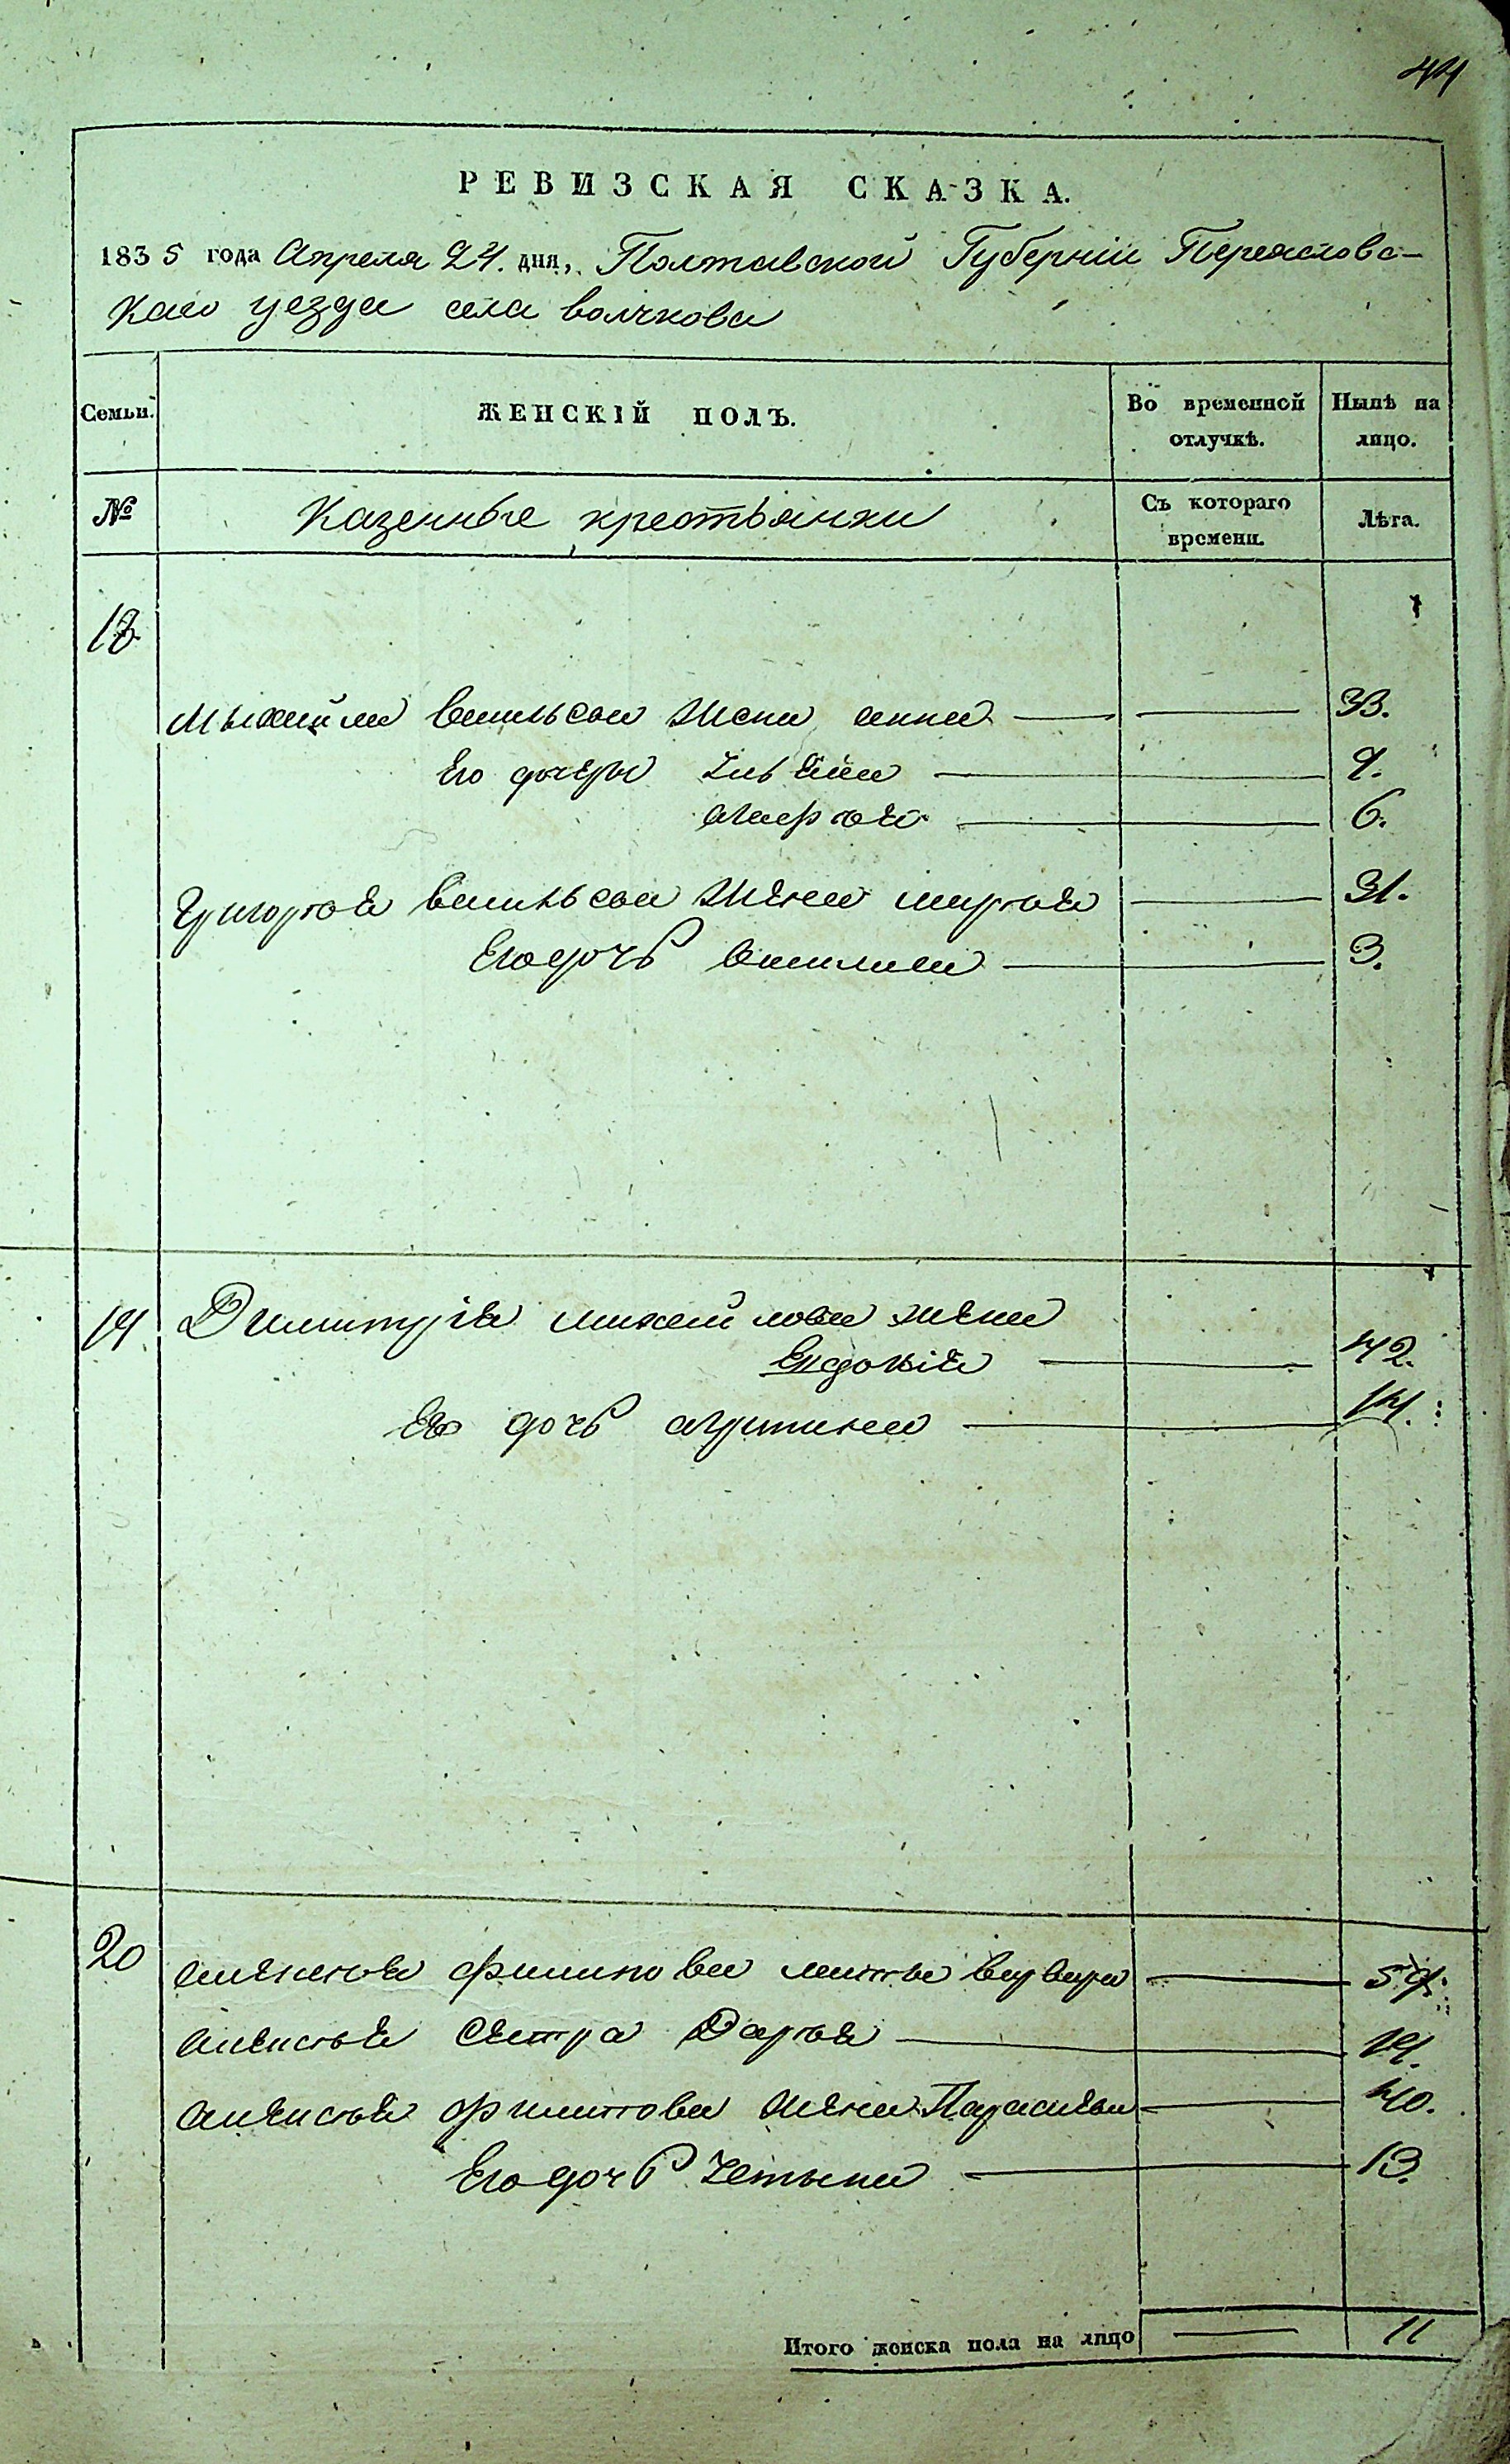 44
РЕВИЗСКАЯ СКАЗКА.
1835 года Апреля 24. дня, Полтавской Губерніи Переяславс-
каго уезда села волчкова
Семьи. ЖЕНСКІЙ ПОЛЪ. Во временной отлучкѣ. Нынѣ на лицо.
№ Казенные крестьянки Съ котораго времени. Лѣта.
18
Михайла жена анна 33.
Его дочери 9.
марья 6.
Григорья жена марья 31.
Его дочь василиса 3.
19 Димитрія михайлова жена
Евдокія 42.
Его дочь 14.
20 алексея филипова матъ варвара 59.
алексея Сестра Дарья 14.
алексея филипова жена Параскевия 40.
Его дочь татьяна 13.
Итого женска пола на лицо 11